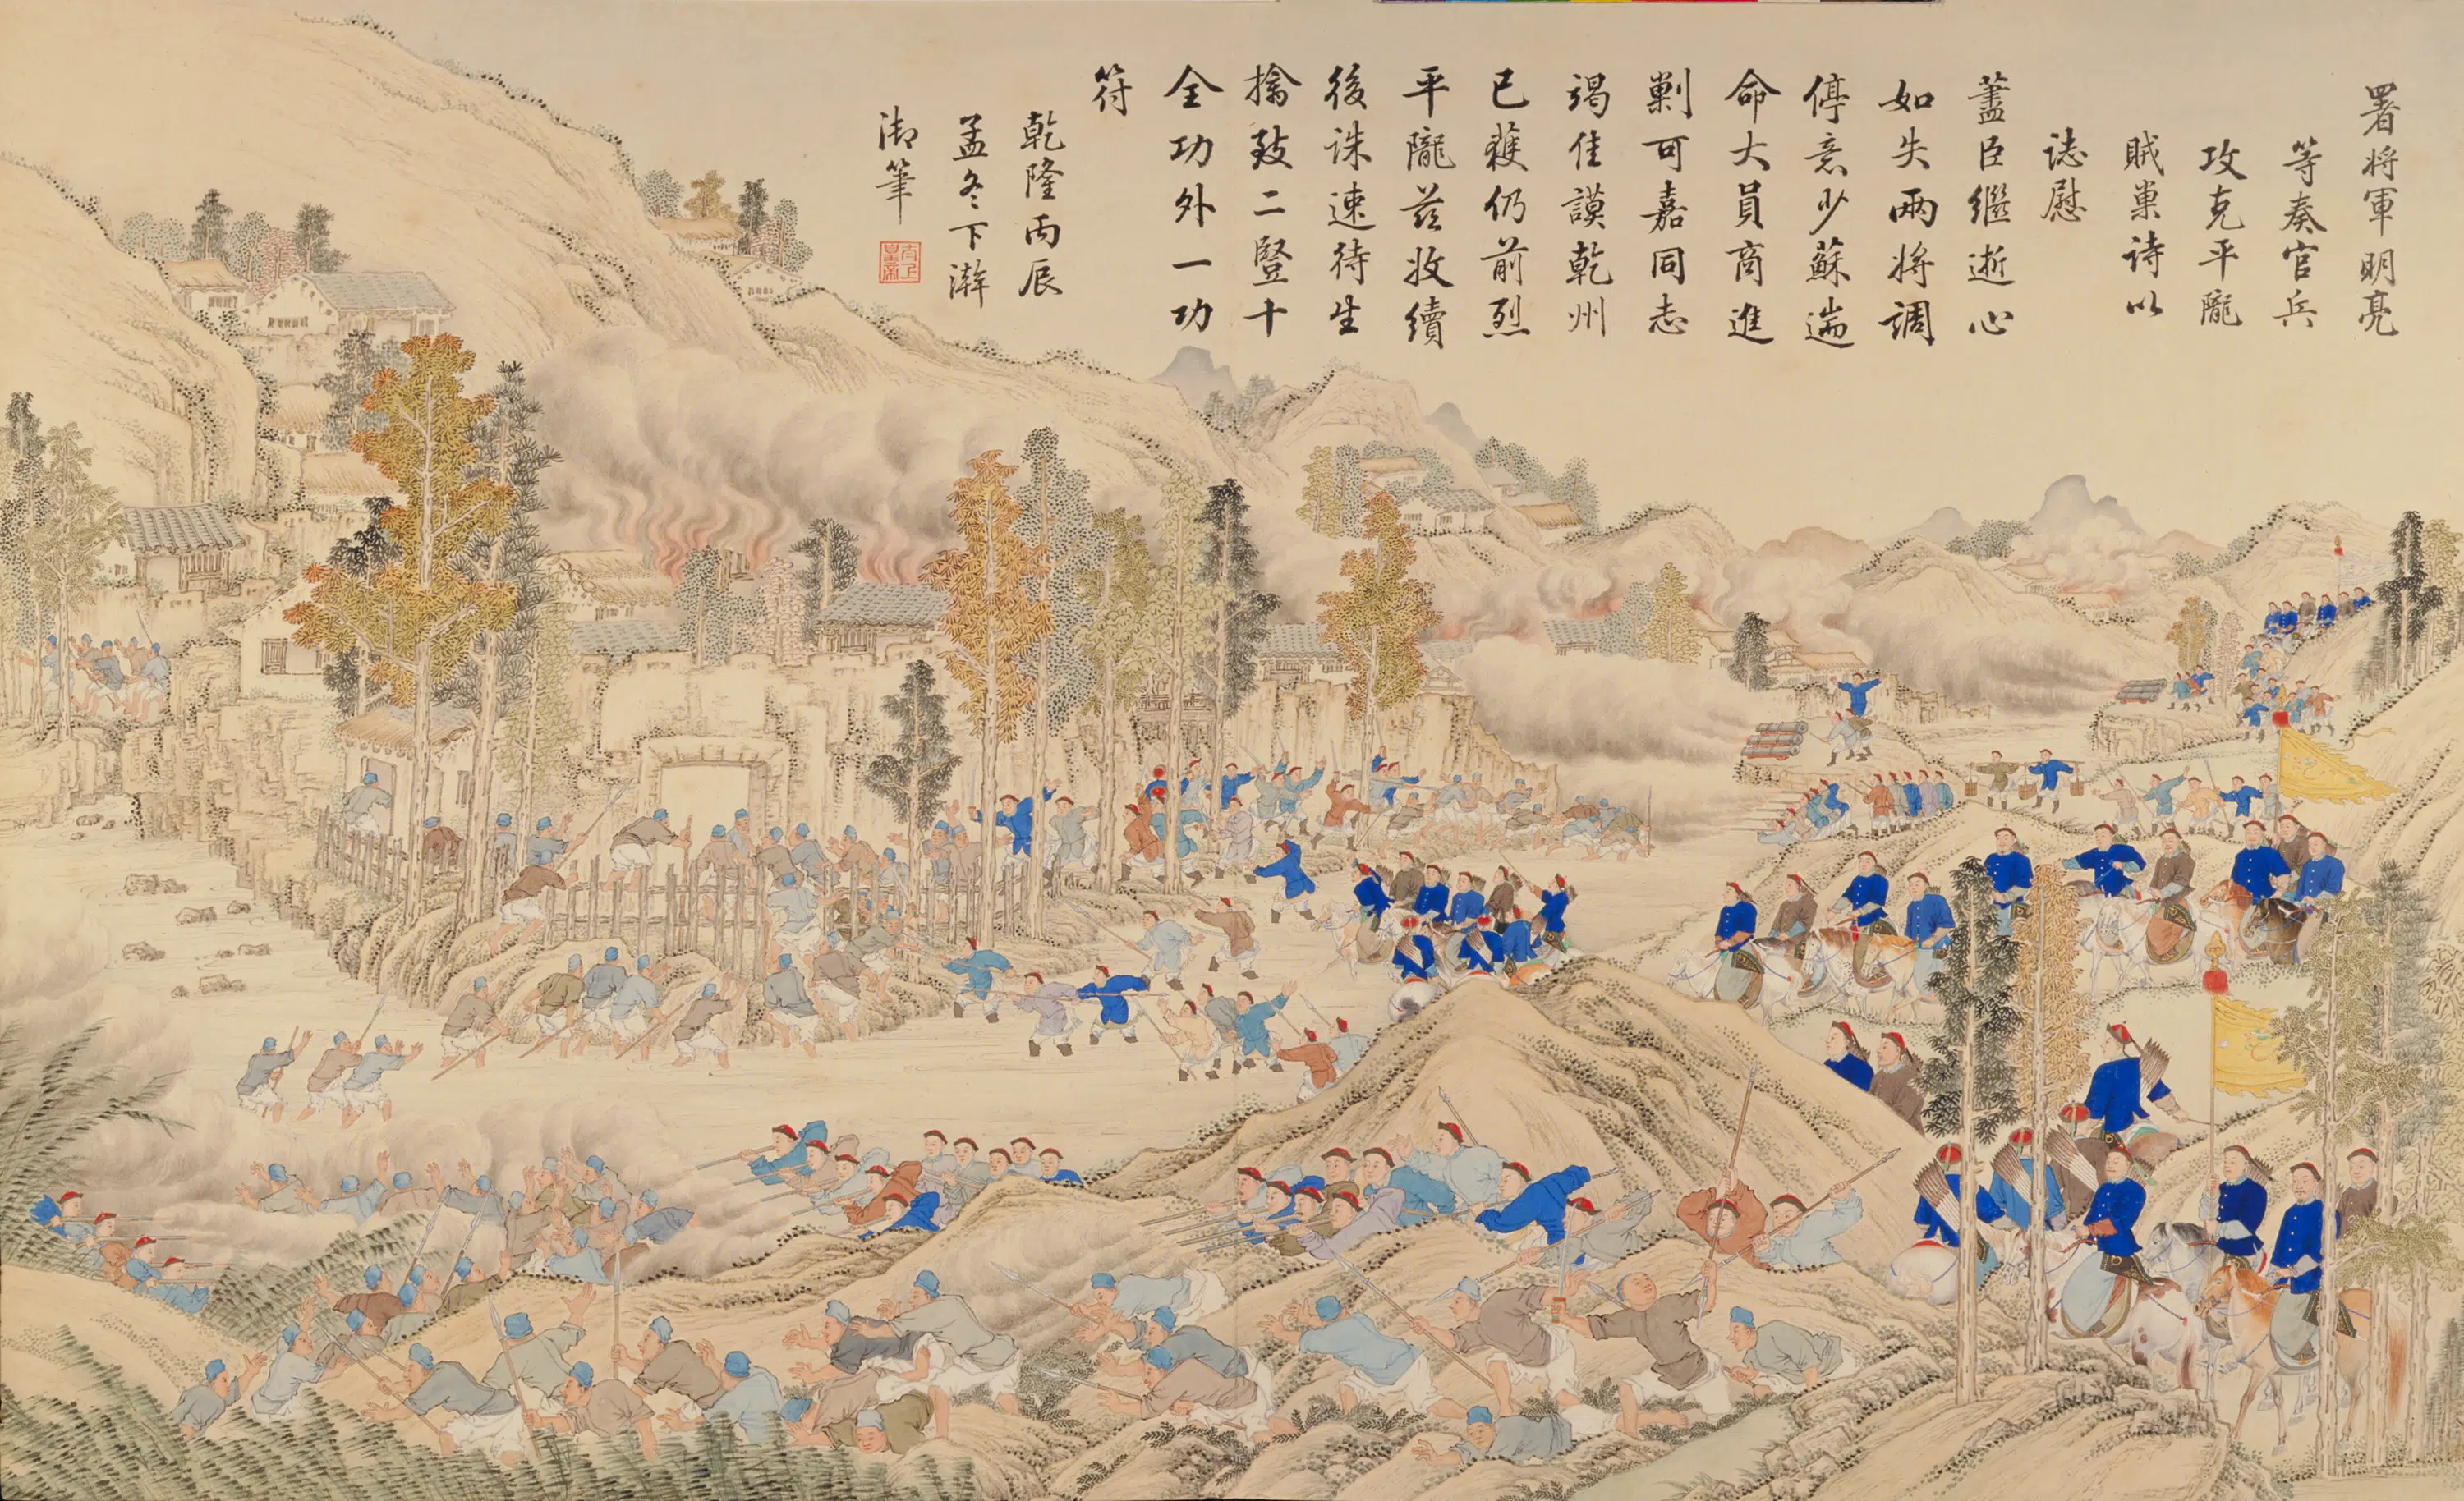 署将軍明亮
等奏官兵
攻克平隴
賊巢詩以
誌慰
藎臣繼逝心
如失兩將調
停意少蘇遄
命大員商進
剿可嘉同志
竭佳謨乾州
已獲仍前烈
平隴茲收續
後誅速待生
擒致二豎十
全功外一功
符
乾隆丙辰
孟冬下澣
御筆
太上皇帝